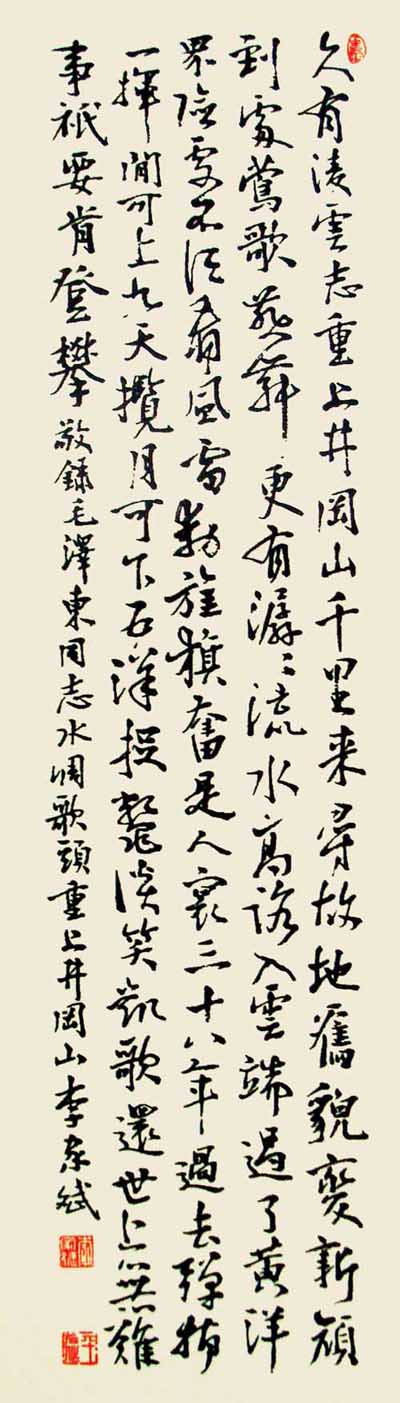 久有凌雲志重上井岡山千里来尋故地舊貌變新顔
到處鶯歌燕舞更有潺〻流水高路入雲端過了黄洋
界險處不須看風雷動旌旗奮是人寰三十八年過去彈指
一揮間可上九天攬月可下五洋捉鱉談笑凱歌還世上無難
事祇要肯登攀敬録毛澤東同志水調歌頭重上井岡山李